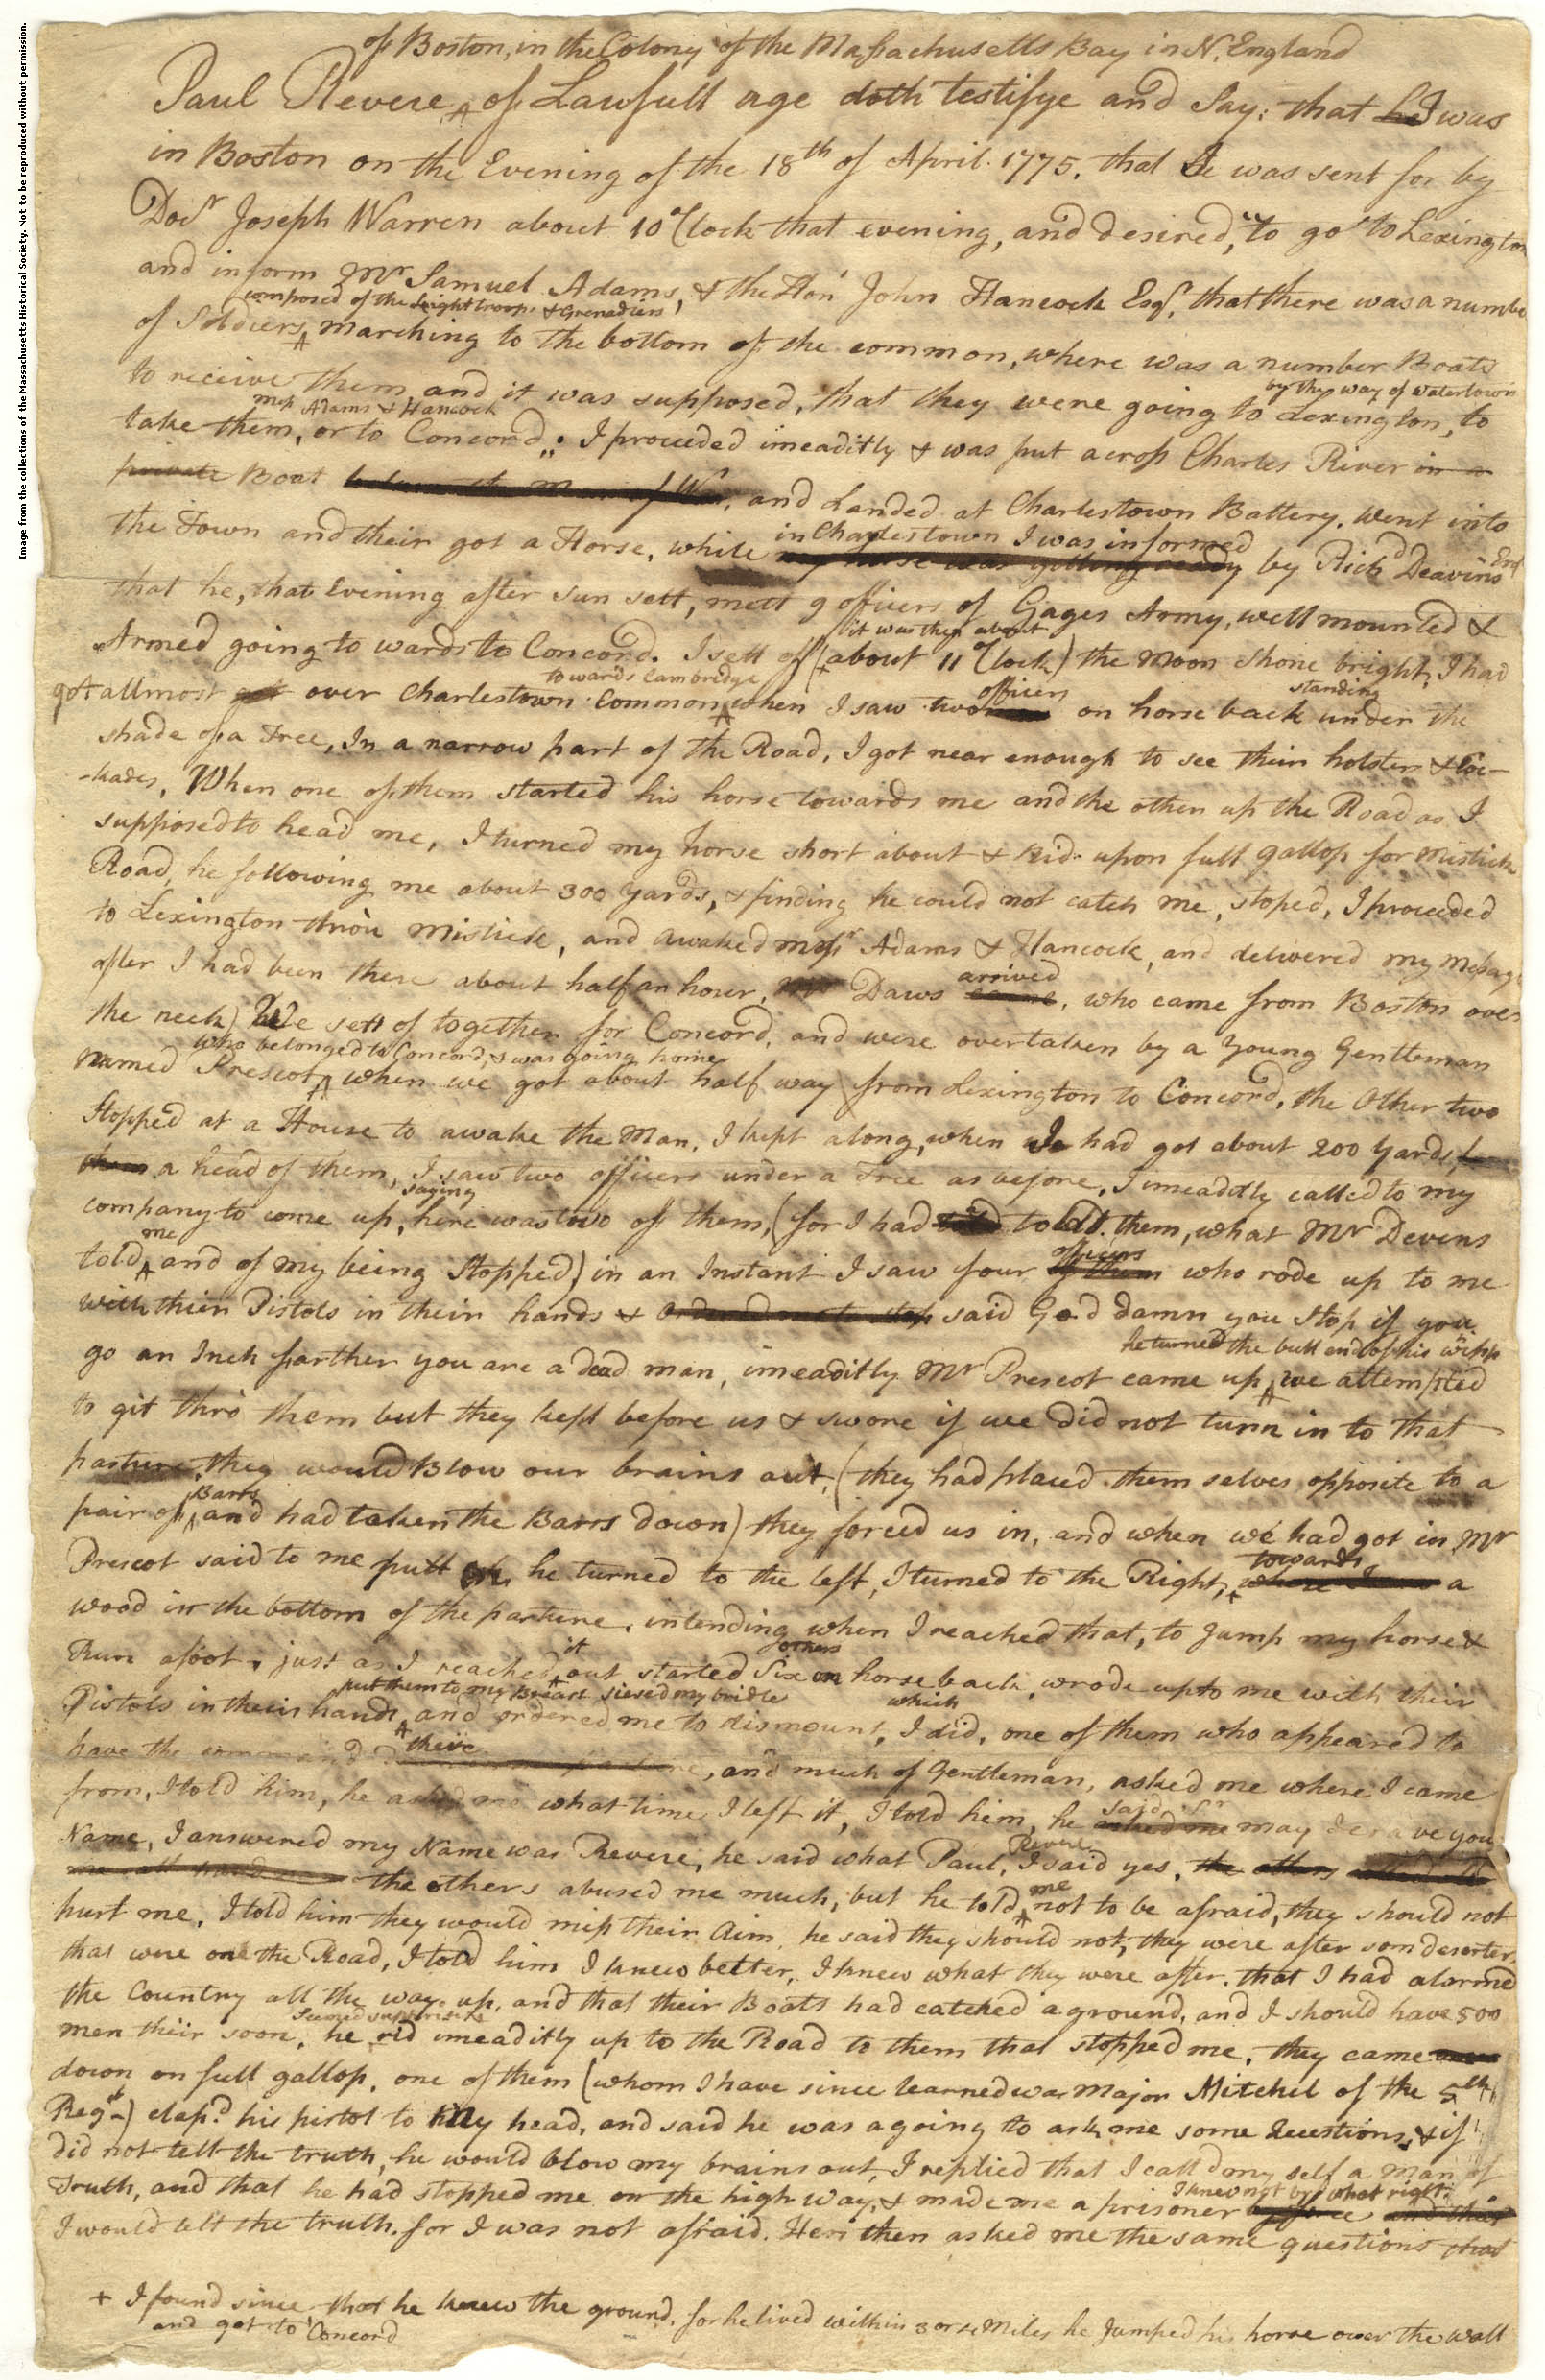 Image from the collections of the Massachusetts Historical Society. Not to be reproduced without permission.
of Boston, in the Colony of the Massachusetts Bay in N. England
Paul Revere, of Lawfull age doth testifye and Say; that I was
in Boston on the Evening of the 18th of April 1775, that I was sent for by
Docr Joseph Warren about 10 oClock that evening, and desired, "to go to Lexington
and inform Mr Samuel Adams, & the Honl John Hancock Esqr. that there was a number
composed of the Light troops & Grenadiers
of Soldiers, marching to the bottom of the common, where was a number Boats
to receive them, and it was supposed, that they were going to Lexington, to
by the way of Watertown
take them, or to Concord": I proceeded imeaditly & was put across Charles River in a
Mess Adams & Hancock
private Boat and Landed at Charlestown Battery, went into
in Charlestown I was informed
the Town and their got a Horse, while by Richd Deavens Esqr
that he, that Evening after sun sett, mett 9 officers of Gages Army, well mounted &
it was then about
Armed going to wards to Concord. I sett off (about 11 oClock) the moon shone bright, I had
towards Cambridge officers standing
got allmost got over Charlestown Common, when I saw two on horse back under the
shade of a Tree, In a narrow part of the Road, I got near enough to see their holsters & Coc-
-kades, When one of them started his horse towards me and the other up the Road as I
supposed to head me, I turned my horse short about & Rid upon full gallop for Mistick
Road, he following me about 300 yards, & finding he could not catch me, stoped, I proceeded
to Lexington thro' Mistick, and awaked Messr Adams & Hancock, and delivered my Message
arrived
after I had been there about half an hour, Mr Daws came, who came from Boston over
the neck) We sett of together for Concord, and were overtaken by a Young Gentleman
who belonged to Concord, & was going home
named Prescot, when we got about half way from Lexington to Concord, the Other two
Stopped at a House to awake the Man, I kept along, when I had got about 200 yards
them a head of them, I saw two officers under a Tree as before, I imeaditly called to my
saying
company to come up, here was two of them, (for I had told them, what Mr Devens
me officers
told, and of my being Stopped) in an Instant I saw four of them who rode up to me
with thier Pistols in their hands & Ordered me to stop said God damn you Stop if you
he turned the butt end of his wipp
go an Inch farther you are a dead man, imeaditly Mr Prescot came up, we attempted
to git thro them but they kept before us & swore if we did not turn in to that
pasture, they would Blow our brains out, (they had placed them selves opposite to a
Barrs
pair of, and had taken the Barrs down) they forced us in, and when we had got in, Mr
towards
Prescot said to me putt on, he turned to the left, I turned to the Right, a
wood in the bottom of the pasture, intending when I reached that, to Jump my horse &
it officers
Run afoot, just as I reached, out started Six on horse back, wrode up to me with their
put them to my Breast siesed my bridle which
Pistols in their hands, and ordered me to dismount, I did, one of them who appeared to
theire
have the command, and much of Gentleman, asked me where I came
from, I told him, he asked me what time I left it, I told him, he asked me may I crave your
said Sr
Name, I answered my Name was Revere, he said what Paul, I said yes, the others
Revere
the others abused me much, but he told, not to be afraid, they should not
me
hurt me, I told him they would miss their Aim, he said they should not, they were after som deserters
that were on the Road, I told him I knew better, I knew what they were after, that I had alarmed
the Country all the way up, and that their Boats had catched aground, and I should have 500
seemed surprised
men their soon, he rid imeaditly up to the Road to them that stopped me, they came
down on full gallop, one of them (whom I have since learned was Major Mitchel of the 5th
Regt) clap.d his pistol to my head, and said he was a going to ask me some Questions, & if I
did not tell the truth, he would blow my brains out, I replied that I call'd my self a man of
Truth, and that he had stopped me on the high way, & made me a prisoner
I knew not by what right,
I would tell the truth, for I was not afraid. He then asked me the same questions that
+ I found since that he knew the ground, for he lived within 3 or 4 Miles he Jumped his horse over the wall
and got to Concord